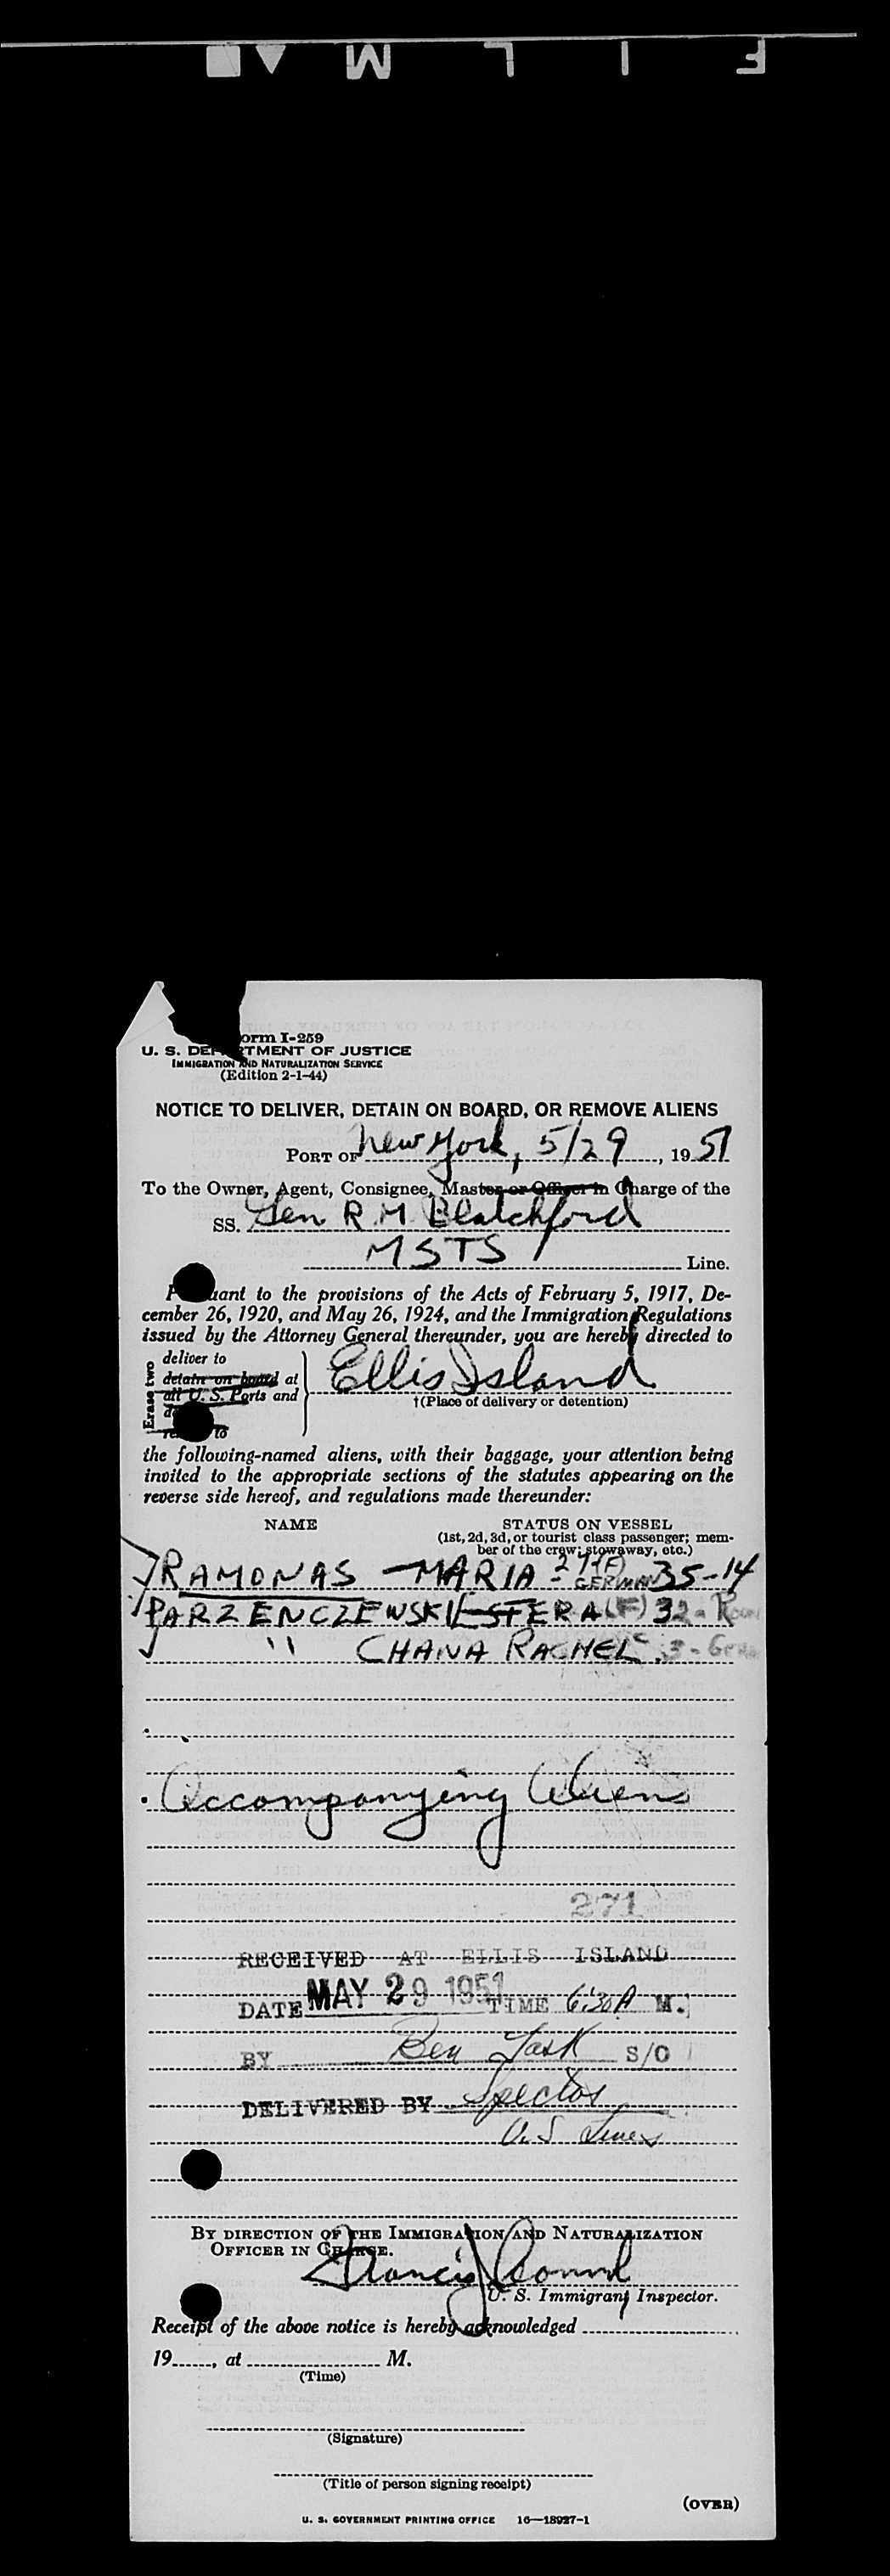 FILM
Form I-259
U. S. DEPARTMENT OF JUSTICE
IMMIGRATION AND NATURALIZATION SERVICE
(Edition 2-1-44)
NOTICE TO DELIVER, DETAIN ON BOARD, OR REMOVE ALIENS
PORT OF New York, 5/29, 1951
To the Owner, Agent, Consignee, Master or Officer in Charge of the
SS. Gen R M Blatchford
MSTS Line.
Pursuant to the provisions of the Acts of February 5, 1917, De-
cember 26, 1920, and May 26, 1924, and the Immigration Regulations
issued by the Attorney General thereunder, you are hereby directed to
Erase two
deliver to
detain on board at
all U. S. Ports and
Ellis Island
†(Place of delivery or detention)
to
the following-named aliens, with their baggage, your attention being
invited to the appropriate sections of the statutes appearing on the
reverse side hereof, and regulations made thereunder:
NAME STATUS ON VESSEL
(1st, 2d, 3d, or tourist class passenger; mem-
ber of the crew; stowaway, etc.)
RAMONAS - MARIA - (F) GERMAN 35-14
PARZENCZEWSKI ESTERA (F) 32 -
" CHANA RACHEL 3 -
Accompanying Aliens
271
RECEIVED AT ELLIS ISLAND
DATE MAY 29 1951 TIME 6:30 A M.
BY Ben S/O
DELIVERED BY Spector
U.S. Lines
BY DIRECTION OF THE IMMIGRATION AND NATURALIZATION
OFFICER IN CHARGE.
Francis J
U. S. Immigrant Inspector.
Receipt of the above notice is hereby acknowledged
19, at M.
(Time)
(Signature)
(Title of person signing receipt)
(OVER)
U. S. GOVERNMENT PRINTING OFFICE 16—18927-1